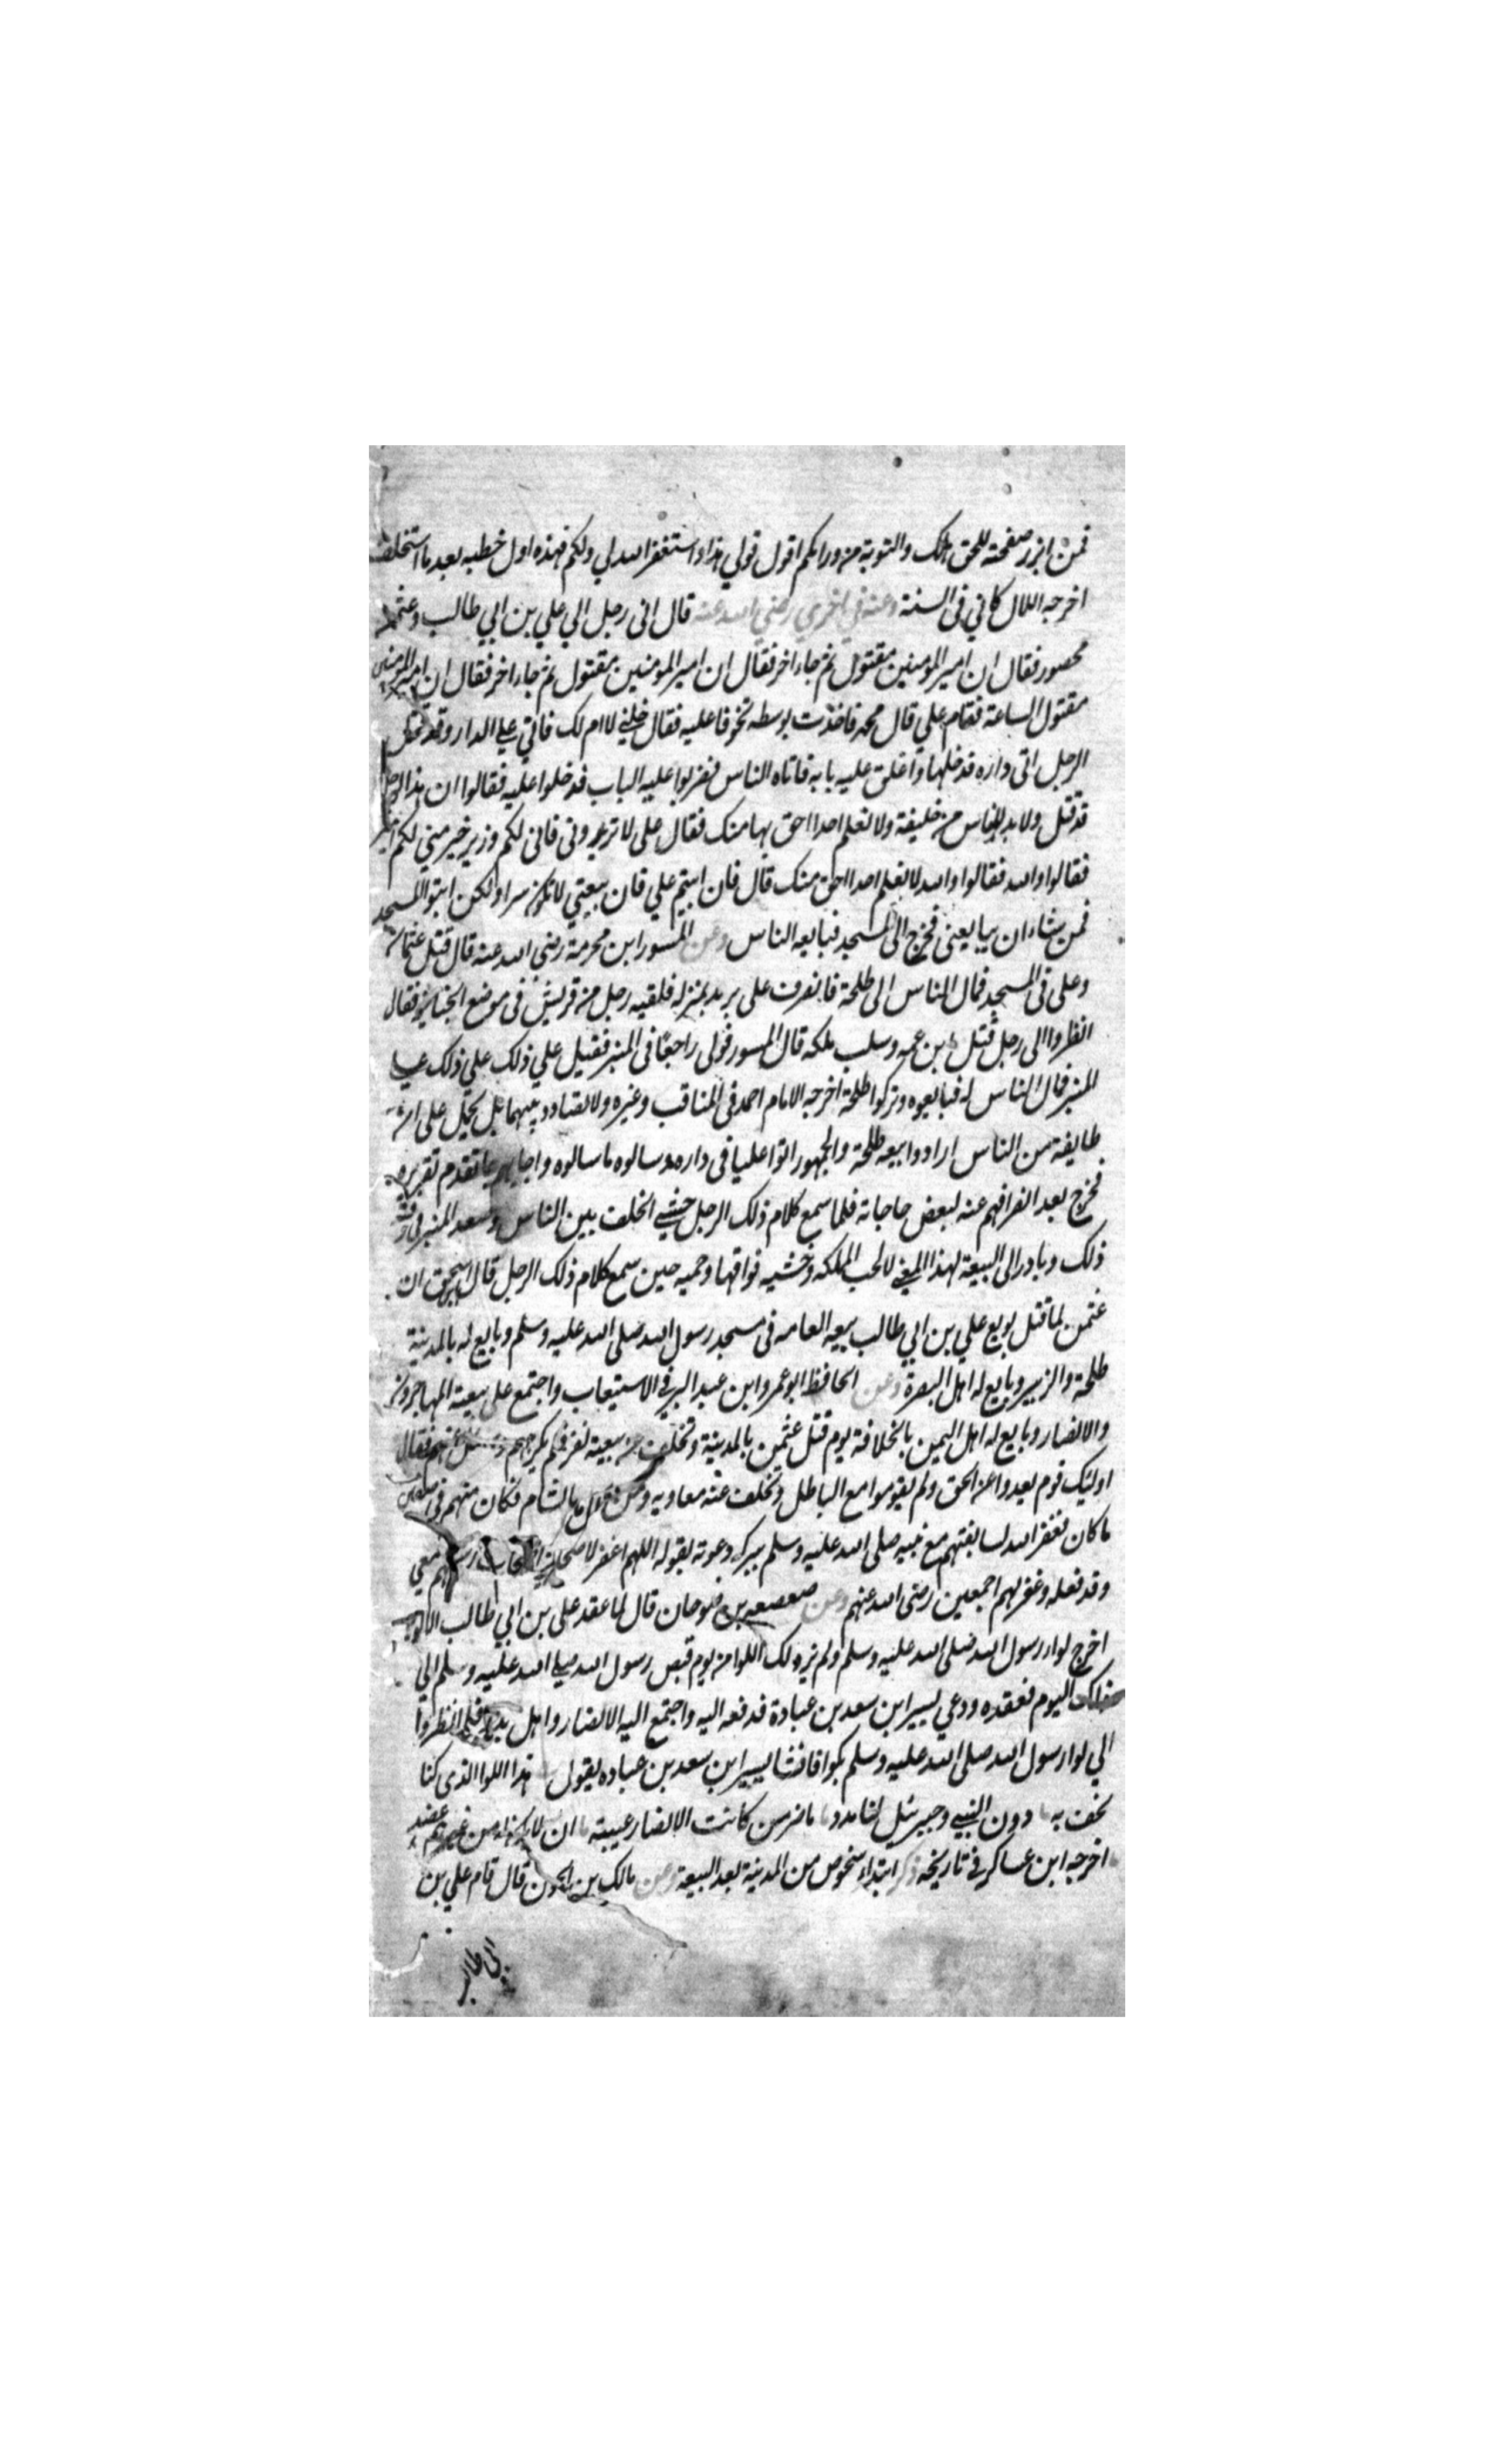 فمن ابرز صفحته للحق هلك والتوبة من ورائكم اقول قولي هذا واستغفر الله لي ولكم فهذه اول خطبه بعد ما استخلف
اخرجه اللال كاني في السنة وعنه في اخري رضي الله عنه قال اتى رجل الي علي بن ابي طالب وعثمان
محصور فقال ان امير المومنين مقتول ثم جاء اخر فقال ان امير المومنين مقتول ثم جاء اخر فقال ان امير المومنين
مقتول الساعة فقام علي قال محمد فاخذت بوسطه تخوفا عليه فقال خلني لا ام لك فاتي علي الدار وقد قتل
الرجل اتى داره فدخلها واغلق عليه بابه فاتاه الناس فضربوا عليه الباب فدخلوا عليه فقالوا ان هذا الرجل
قد قتل ولا بد للناس من خليفة ولا نعلم احدا احق بها منك فقال على لا تريدونى فانى لكم وزير خير مني لكم امير
فقالوا والله فقالوا والله لا نعلم احدا احق منك قال فان ابيتم علي فان بيعتي لا تكون سرا ولكن ايتوا المسجد
فمن شاء ان يبايعنى فخرج الى المسجد فبايعه الناس وعن المسور ابن مخرمة رضى الله عنه قال قتل عثمان
وعلى فى المسجد فمال الناس الى طلحة فانصرف على يريد بمنزله فلقيه رجل من قريش فى موضع الجنايز فقال
انظروا الى رجل قتل بن عمه وسلب ملكه قال المسور فولى راجعا فى المنبر فقيل علي ذلك علي ذلك علي
المنبر فمال الناس له فبايعوه وتركوا طلحة اخرجه الامام احمد فى المناقب وغيره ولا تضاد بينهما بل يحمل على ان
طايفة من الناس ارادوا بيعه طلحة والجمهور اتوا عليا فى داره وسالوه ما سالوه واجابهم علي ما تقدم تقريره
فخرج بعد انصرافهم عنه لبعض حاجاته فلما سمع كلام ذلك الرجل خشي الخلف بين الناس وصعد المنبر فى
ذلك وبادر الى البيعة لهذا المعني لا لحب المملكه وخشيه فواقها وحميه حين سمع كلام ذلك الرجل قال ابن اسحق ان
عثمن لما قتل بويع علي بن ابي طالب بيعه العامه فى مسجد رسول الله صلى الله عليه وسلم وبايع له بالمدينة
طلحة والزبير وبايع له اهل البصرة وعن الحافظ ابو عمر وابن عبد البر في الاستيعاب واجتمع على بيعته المهاجرون
والانصار وبايع له اهل اليمين بالخلافة يوم قتل عثمن بالمدينة وتخلف عن بيعته نفر فلم يكرههم وسئل عنهم فقال
اولئيك قوم بعدوا عن الحق ولم يقوموا مع الباطل وتخلف عنه معاويه ومن معه بالشام فكان منهم فى
ما كان فغفر الله لسابقتهم مع نبيه صلى الله عليه وسلم ببركه دعوته بقوله اللهم اغفر لاصحابي
وقد فعله وغفر لهم اجمعين رضى الله عنهم وعن صعصعه بن صوحان قال لما عقد على بن ابي طالب الالويه
اخرج لواء رسول الله صلى الله عليه وسلم ولم ير ذلك اللوا من يوم قبض رسول الله صلي الله عليه وسلم الي
ذلك اليوم فعقده ودعي ليسير ابن سعد بن عبادة فدفعه اليه واجتمع اليه الانصار واهل بدر فلما نظروا
الي لواء رسول الله صلى الله عليه وسلم بكوا فانشا يسير ابن سعد بن عباده يقول هذا اللوا الذى كنا
نحف به دون النبي وجبرئيل لنا مدد ما ضر من كانت الانصار عيبته ان لا يكون له من غيرهم عضد
اخرجه ابن عساكر في تاريخه ذكر ابتداء شخوص من المدينة بعد البيعة وعن مالك بن الجون قال قام علي بن
ابى طالب